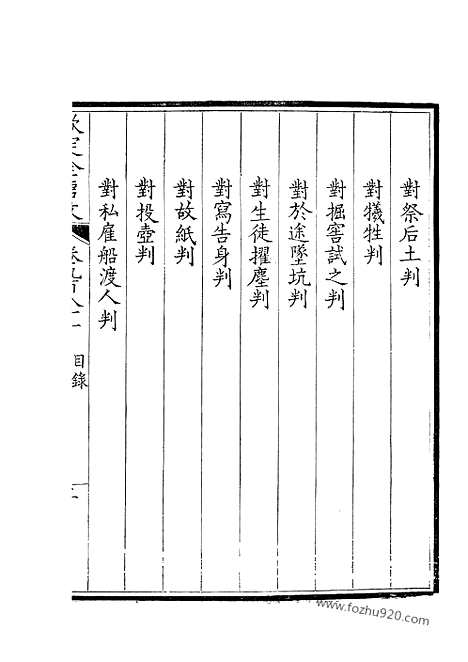 對祭后土判
對犠牲判
對掘窖試之判
對於途墜坑判
對生徒擢塵判
對寫告身判
對故紙判
對投壺判
對私雇船渡人判
欽定全唐文
目錄
www.fozhu920.com